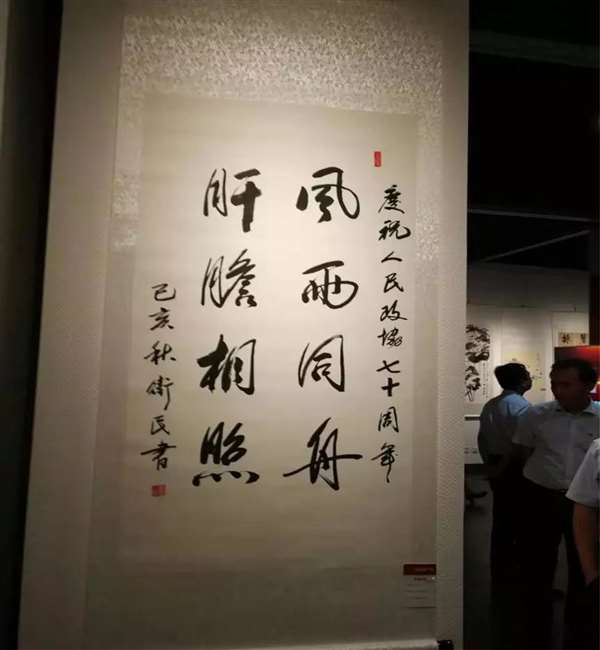 庆祝人民政协七十周年
風雨同舟
肝膽相照
己亥秋衛民書